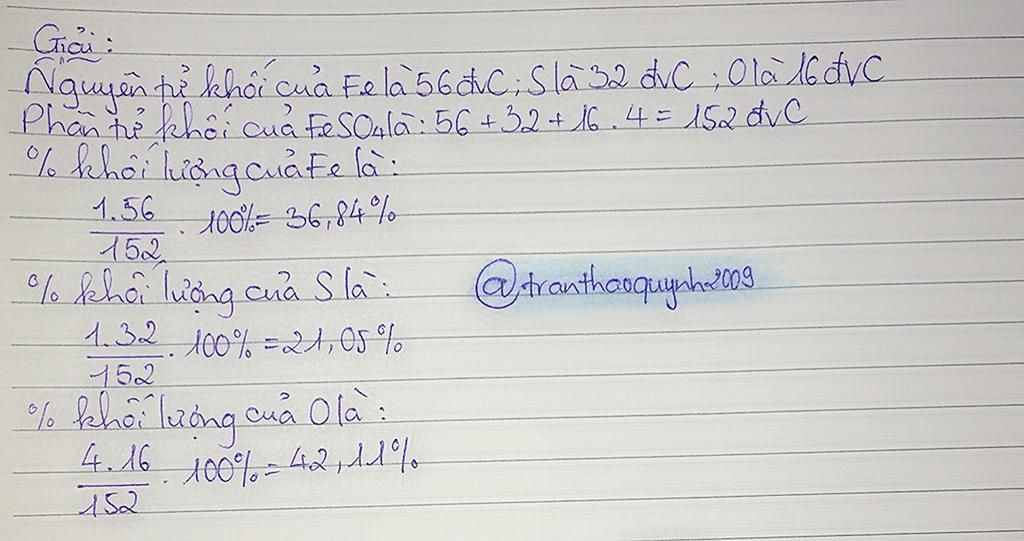 Giải:
Nguyên tử khối của Fe là 56 đvC; S là 32 đvC; O là 16 đvC
Phân tử khối của FeSO₄ là: 56 + 32 + 16 . 4 = 152 đvC
% khối lượng của Fe là:
1.56
. 100% = 36,84%
152
% khối lượng của S là:
@tranthaoquynh2009
1.32
. 100% = 21,05%
152
% khối lượng của O là:
4.16
. 100% = 42,11%
152